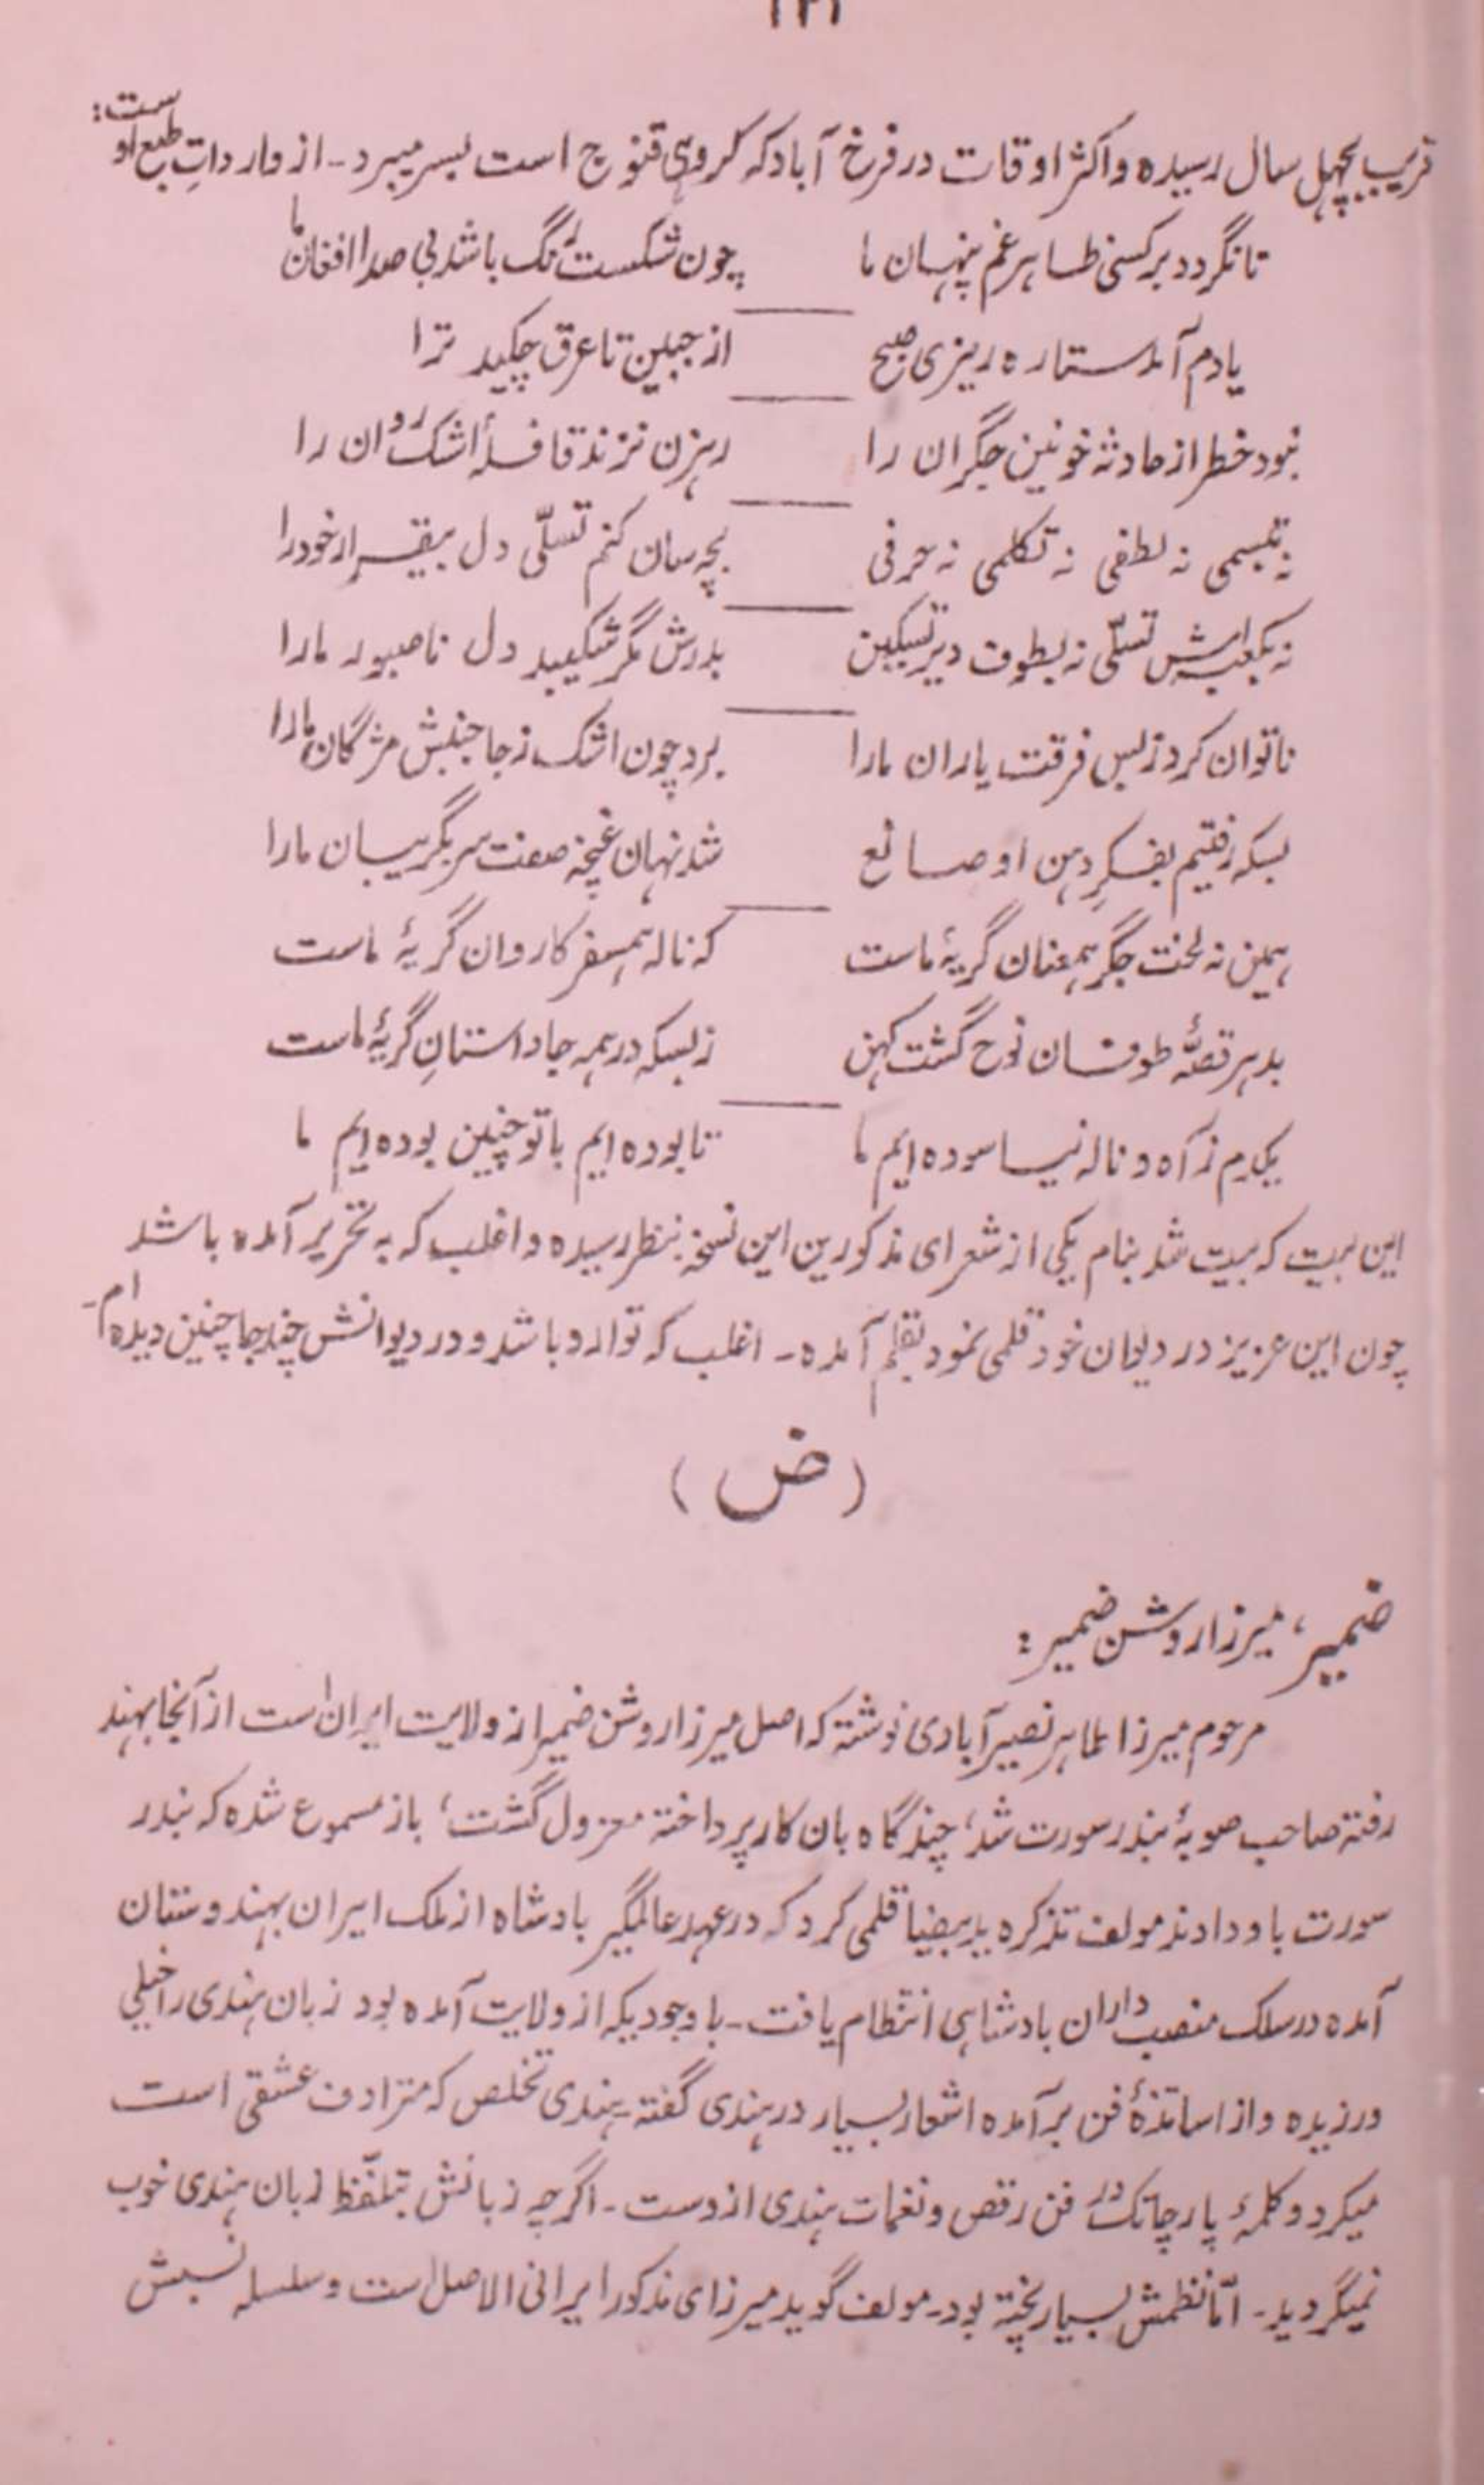 قریب بچہل سال رسیدہ واکثر اوقات در فرخ آباد کہ کروہی قنوج است بسر میبرد۔ از وارداتِ طبع او ست:
تا نگردد بر کسی ظاہر غم پنہان ما چون شکست رنگ باشد بی صدا افغان ما
یادم آمد ستارہ ریزی صبح از جبین تا عرق چکید ترا
نبود خطر از حادثہ خونین جگران را رہزن نزند قافلۂ اشک روان را
نہ تبسمی نہ لطفی نہ تکلمی نہ حرفی بچہ سان کنم تسلّی دل بیقرار خود را
نہ بکعبہ اش تسلّی نہ بطوف دیر تسکین بدرش مگر شکیبد دل ناصبور ما را
ناتوان کرد زبس فرقت یاران ما را برد چون اشک ز جا جنبش مژگان ما را
بسکہ رفتیم بفکرِ دہن او صانع شد نہان غنچہ صفت سر بگریبان ما را
ہمین نہ لخت جگر ہمعنان گریۂ ماست کہ نالہ ہمسفر کاروان گریۂ ماست
بدہر قصّۂ طوفان نوح گشت کہن زبسکہ در ہمہ جا داستانِ گریۂ ماست
یکدم ز آہ و نالہ نیاسودہ ایم ما تا بودہ ایم با تو چنین بودہ ایم ما
این بیت کہ بیت شد بنام یکی از شعرای مذکورین این نسخہ بنظر رسیدہ و اغلب کہ بہ تحریر آمدہ باشد
چون این عزیز در دیوان خود قلمی نمود بقلم آمدہ۔ اغلب کہ توارد باشد و در دیوانش چند جا چنین دیدہ ام۔
(ض)
ضمیر، میرزا روشن ضمیر:
مرحوم میرزا طاہر نصیرآبادی نوشتہ کہ اصل میرزا روشن ضمیر از ولایت ایران است از آنجا بہند
رفتہ صاحب صوبۂ بندر سورت شد، چند گاہ بان کار پرداختہ معزول گشت، باز مسموع شدہ کہ بندر
سورت باو دادند مولف تذکرہ ید بیضا قلمی کرد کہ در عہد عالمگیر بادشاہ از ملک ایران بہندوستان
آمدہ در سلک منصب داران بادشاہی انتظام یافت۔ باوجودیکہ از ولایت آمدہ بود زبان ہندی را خیلی
ورزیدہ و از اساتذۂ فن برآمدہ اشعار بسیار در ہندی گفتہ۔ ہندی تخلص کہ مترادف عشقی است
میکرد و کلمۂ پارچاتک در فن رقص و نغمات ہندی ازوست۔ اگرچہ زبانش بتلفّظ زبان ہندی خوب
نمیگردید۔ امّا نظمش بسیار پختہ بود۔ مولف گوید میرزای مذکور ایرانی الاصل است و سلسلہ نسبش